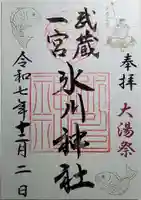 奉拝
大湯祭
武蔵
一宮
氷川神社
令和七年十二月二日